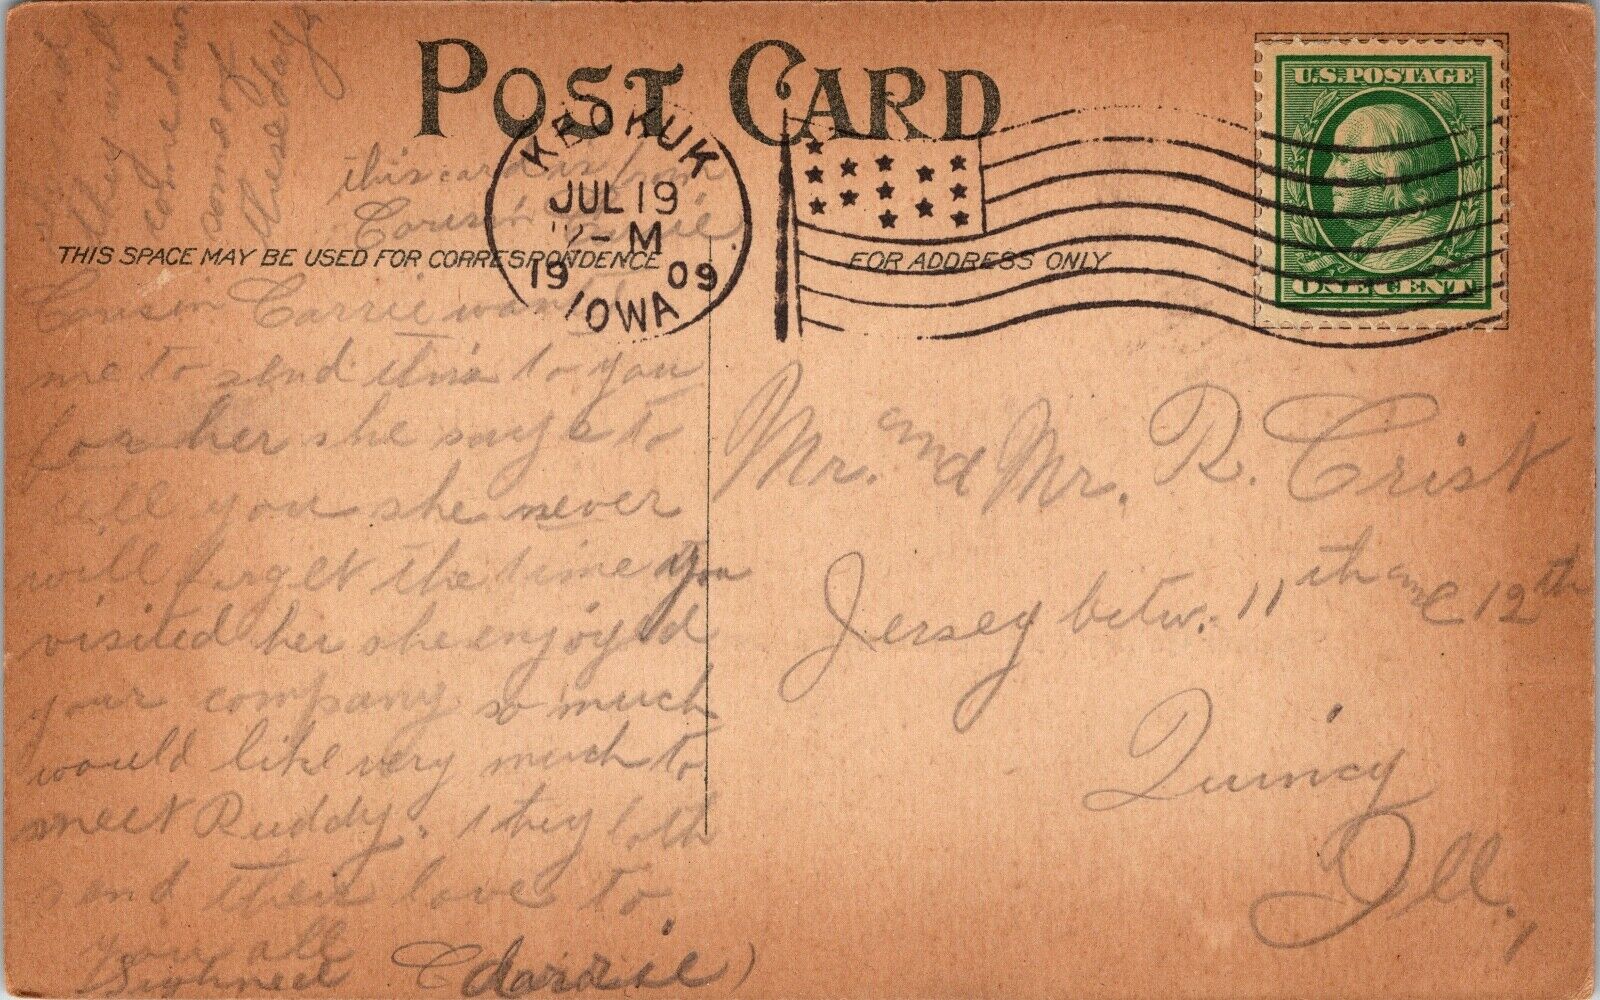 POST CARD
U.S. POSTAGE
ONE CENT
KEOKUK
JUL 19
M
19 09
IOWA
they will
come down
some of
these days
this card is from
Cousin Carrie
THIS SPACE MAY BE USED FOR CORRESPONDENCE
FOR ADDRESS ONLY
Cousin Carrie wants
me to send this to you
for her she says to
tell you she never
will forget the time you
visited her she enjoyed
your company so much
would like very much to
meet Ruddy. they both
send their love to
you all
Sighned (Carrie)
Mr. and Mr. R. Crist
Jersey betw. 11th and 12th
Quincy
Ill.,